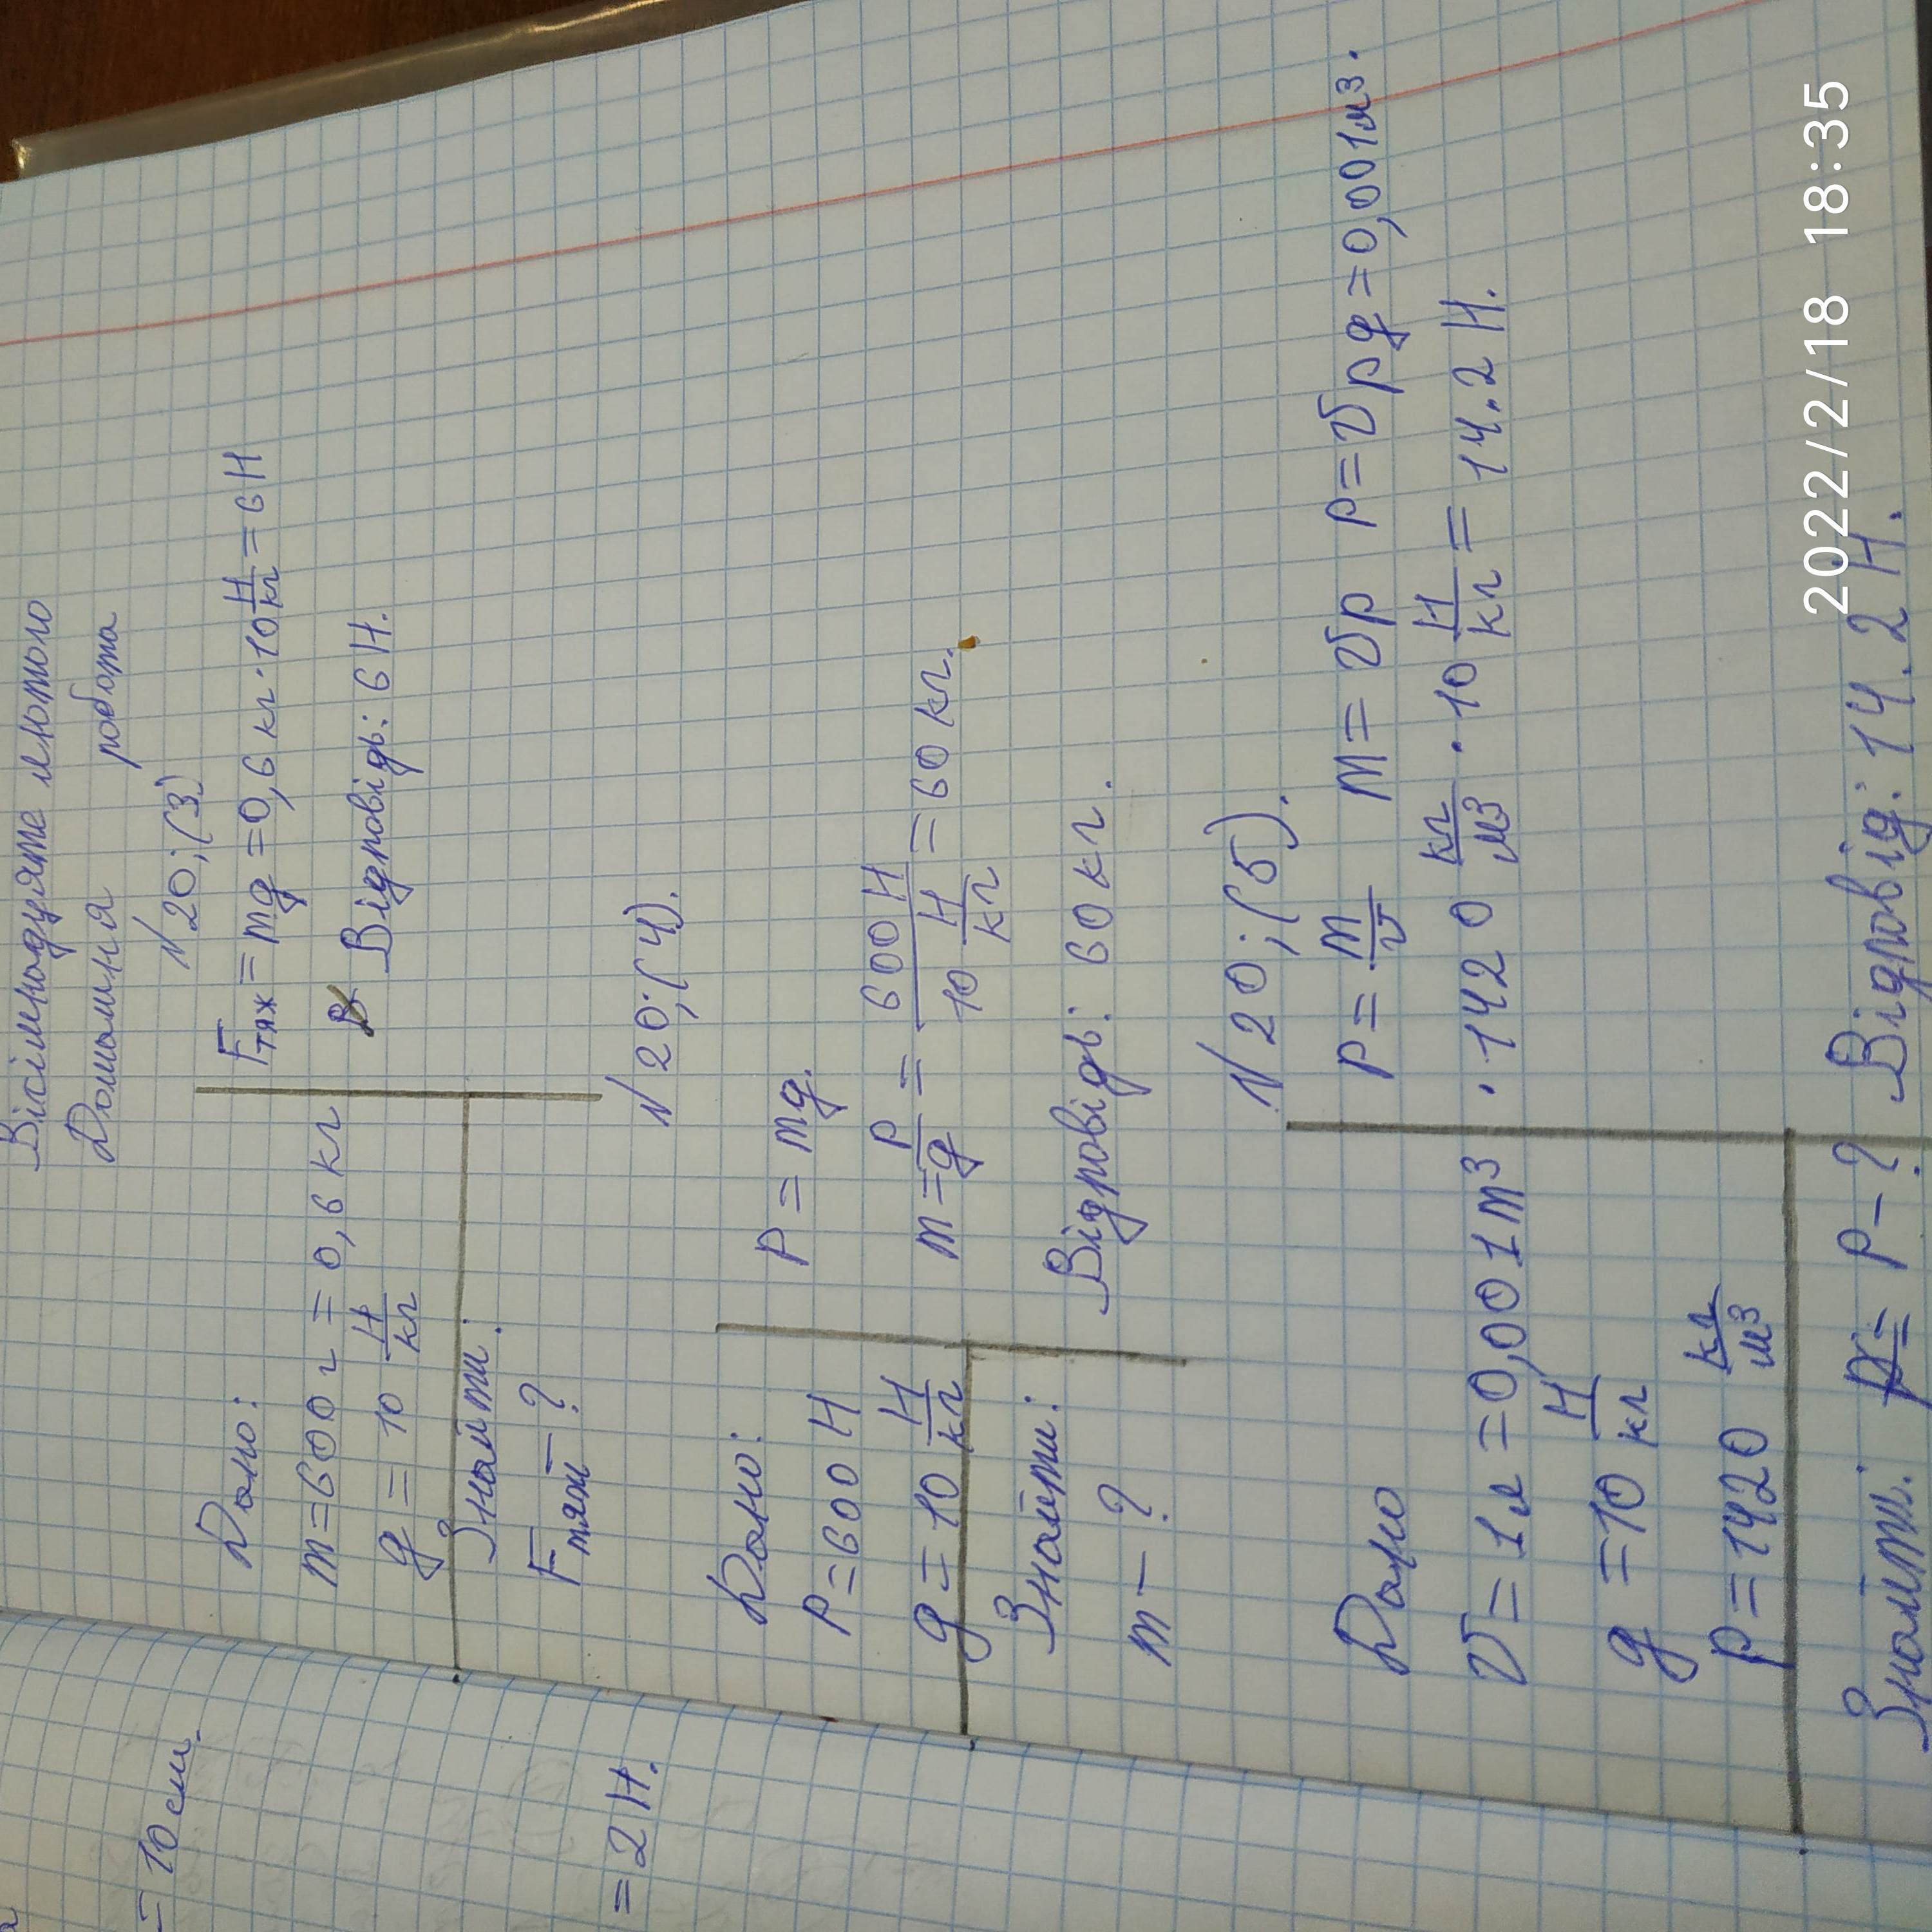 Вісімнадцяте лютого
Домашня робота
№20;(3)
Дано:
m=600г=0,6кг
g=10 Н/кг
Знайти:
Fтяж-?
Fтяж=mg=0,6кг·10 Н/кг=6Н
Відповідь: 6Н.
№20;(4).
Дано:
P=600Н
g=10 Н/кг
Знайти:
m-?
P=mg.
m=P/g=600Н/10 Н/кг=60кг.
Відповідь: 60кг.
№20;(5).
Дано
V=1л=0,001m³
g=10 Н/кг
p=1420 кг/м3
Знайти: P-?
p=m/V m=Vp P=Vpg=0,001м3.
·1420 кг/м3·10 Н/кг=14.2Н.
Відповід: 14.2Н.
=10см.
=2Н.
2022/2/18 18:35